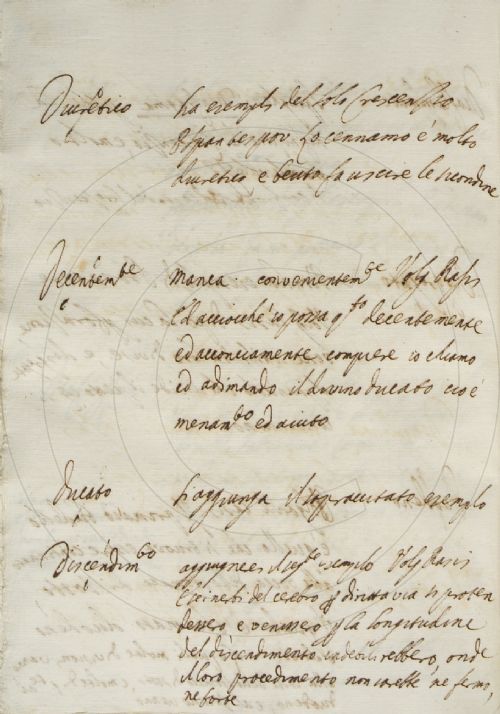 Diuretico ha esempli del solo Crescenzio
Lo cennamo è molto
diuretico e beuto fa uscire le secondine
Decentem.te manca. convenientem.te Volg. Rasis
Ed acciocché io possa q.to decentemente
ed acconciamente compiere io chiamo
ed adimando il divino ducato cioè
menam.to ed aiuto
Ducato si aggiunga il sopracitato esempio
Discendim.to il seg.te esempio Volg. Rasis
E se i nerbi del celebro p diritta via si proten
dessero e venissero p la longitudine
del discendimento indebilirebbero, onde
il loro procedimento non sarebbe ne fermo,
ne forte